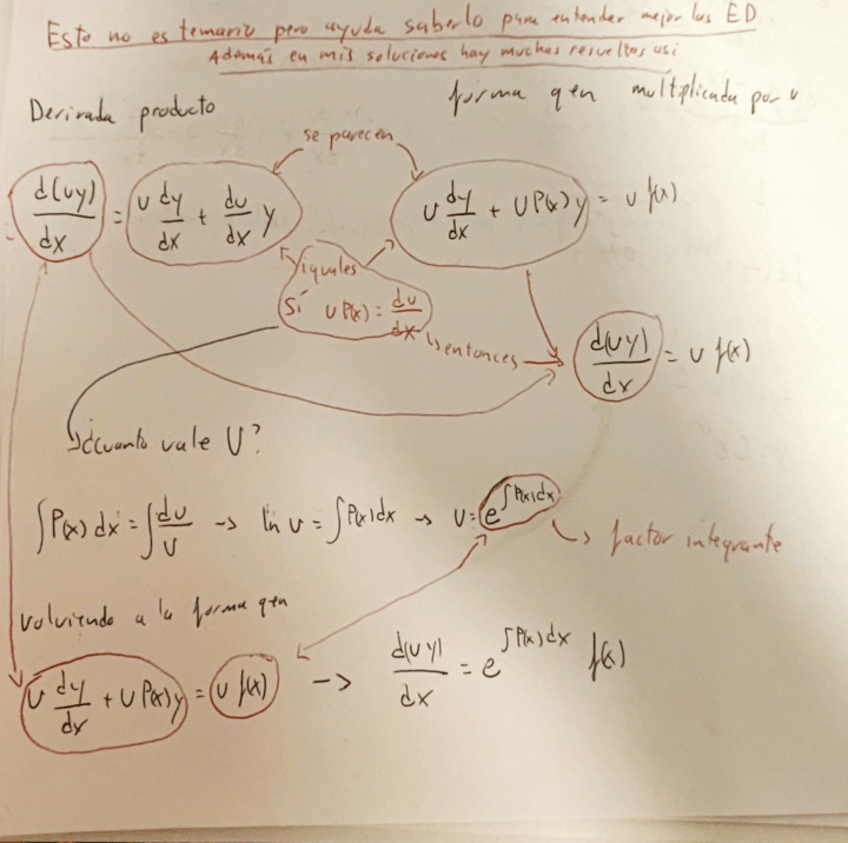 Esto no es temario pero ayuda saberlo para entender mejor las ED
Además en mis soluciones hay muchas resueltas así
Derivada producto
forma gen multiplicada por u
se parecen
d(uy)/dx = u dy/dx + du/dx y
u dy/dx + u P(x) y = u f(x)
iguales
Sí u P(x) = du/dx
entonces
d(uy)/dx = u f(x)
¿cuanto vale U?
∫P(x) dx = ∫du/u → ln u = ∫P(x)dx → u = e^∫P(x)dx
factor integrante
volviendo a la forma gen
u dy/dx + u P(x) y = u f(x) → d(uy)/dx = e^∫P(x)dx f(x)